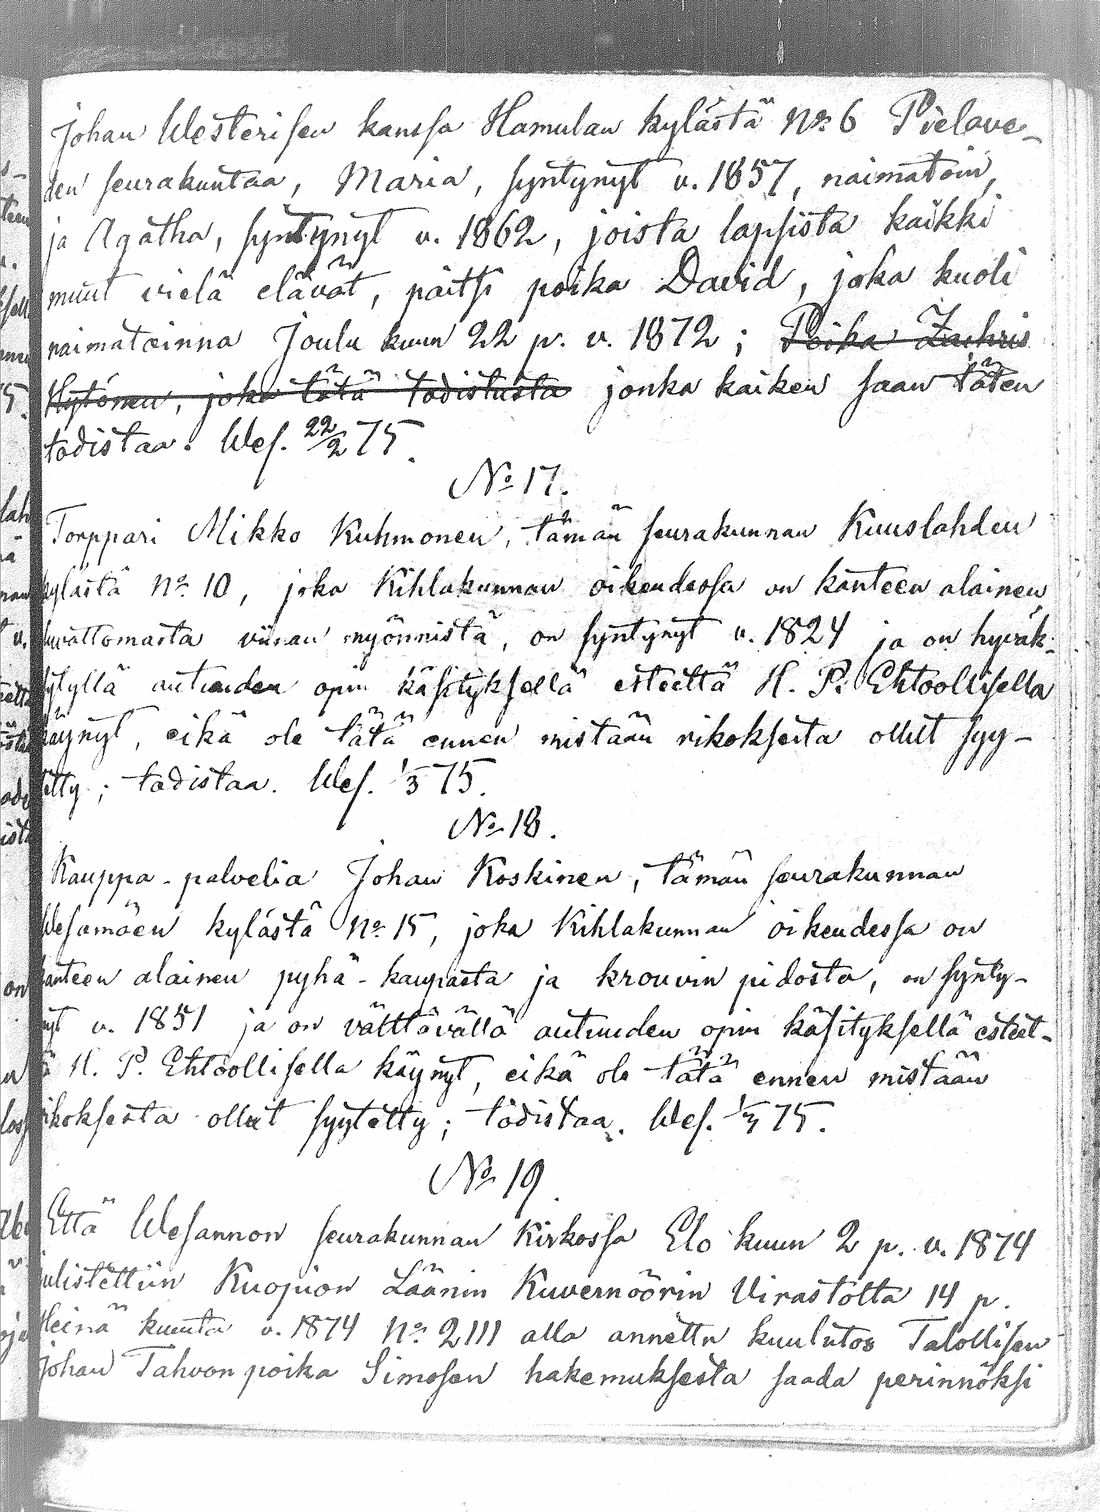 Johan Westerisen kanssa Hamulan kylästä No 6 Pielave-
den seurakuntaa, Maria, syntynyt v. 1857, naimatoin,
ja Agatha, syntynyt v. 1862, joista lapsista kaikki
muut vielä elävät, paitsi poika David, joka kuoli
naimatoinna Joulu kuun 22 p. v. 1872; Poika Zachris
Hytönen, joka tätä todistusta jonka kaiken saan täten
todistaa. Wes. 22/2 75.
No 17.
Torppari Mikko Kuhmonen, tämän seurakunnan Kuuslahden
kylästä No 10, joka Kihlakunnan oikeudessa on kanteen alainen
luvattomasta viinan myönnistä, on syntynyt v. 1824 ja on hyväk-
sytyllä autuuden opin käsityksellä esteettä H. P. Ehtoollisella
käynyt, eikä ole tätä ennen mistään rikoksesta ollut syy-
tetty; todistaa. Wes. 1/3 75.
No 18.
Kauppa-palvelia Johan Koskinen, tämän seurakunnan
Wesamäen kylästä No 15, joka Kihlakunnan oikeudessa on
kanteen alainen pyhä-kaupasta ja krouvin pidosta, on synty-
nyt v. 1851 ja on välttävällä autuuden opin käsityksellä esteet-
tä H. P. Ehtoollisella käynyt, eikä ole tätä ennen mistään
rikoksesta ollut syytetty; todistaa. Wes. 1/3 75.
No 19.
Että Wesannon seurakunnan Kirkossa Elo kuun 2 p. v. 1874
julistettiin Kuopion Läänin Kuvernöörin Virastolta 14 p.
Heinä kuuta v. 1874 No 2111 alla annettu kuulutos Talollisen
Johan Tahvon poika Simosen hakemuksesta saada perinnöksi